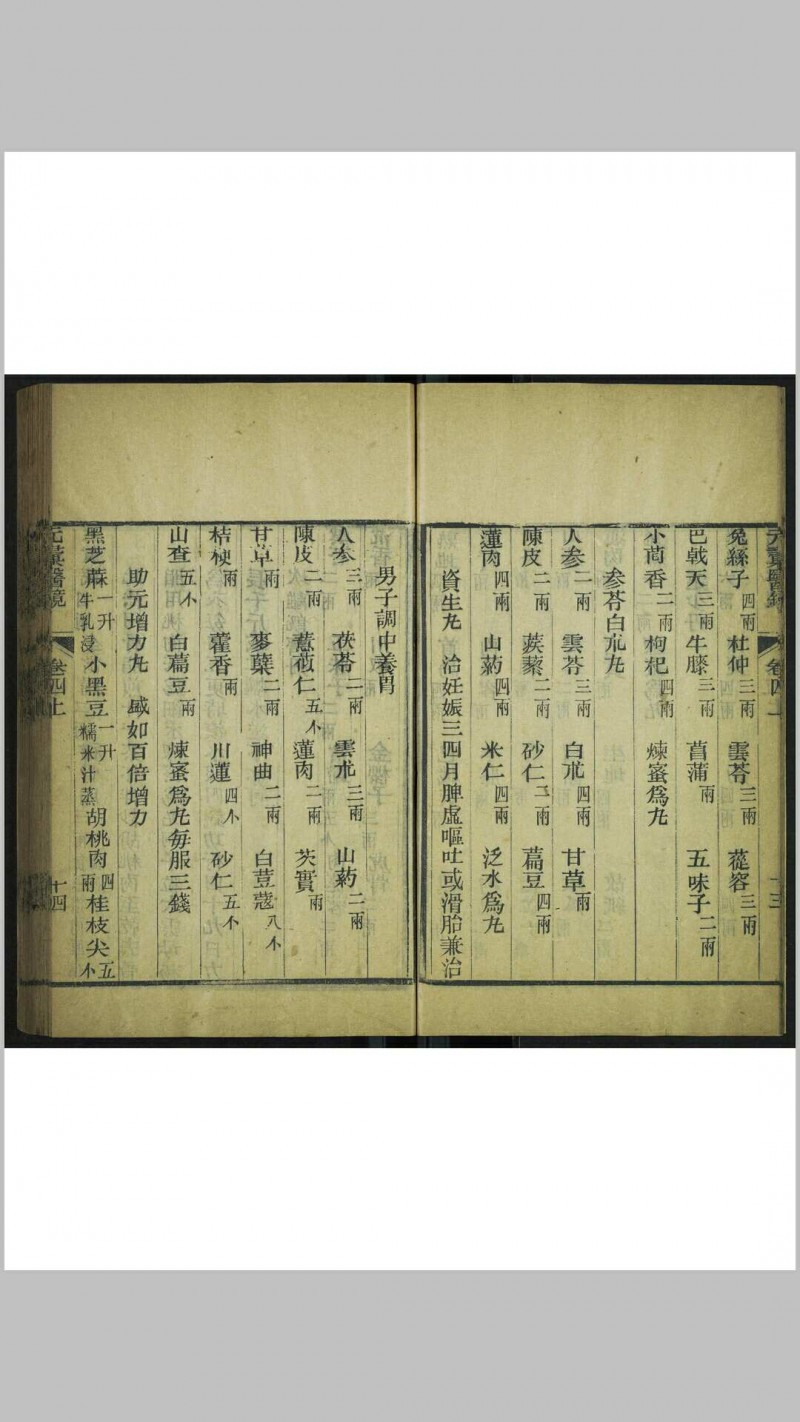 兔絲子四兩 杜仲三兩 雲苓三兩 蓯容三兩
巴戟天三兩 牛膝三兩 菖蒲兩 五味子二兩
小茴香二兩 枸杞四兩 煉蜜爲丸
参苓白朮丸
人参二兩 雲苓三兩 白朮四兩 甘草兩
陳皮二兩 蒺藜二兩 砂仁二兩 萹豆四兩
蓮肉四兩 山葯四兩 米仁四兩 泛水爲丸
資生丸 治妊娠三四月脾虛嘔吐或滑胎兼治
男子調中養胃
人参三兩 茯苓二兩 雲朮三兩 山葯二兩
陳皮二兩 薏苡仁五小 蓮肉二兩 芡實兩
甘草兩 麥蘖二兩 神曲二兩 白荳蔻八小
桔梗兩 藿香兩 川蓮四小 砂仁五小
山查五小 白萹豆兩 煉蜜爲丸每服三錢
助元增力丸 威如百倍增力
黑芝蔴一升牛乳浸 小黑豆一升糯米汁蒸 胡桃肉四兩 桂枝尖五小
卷四上 十四